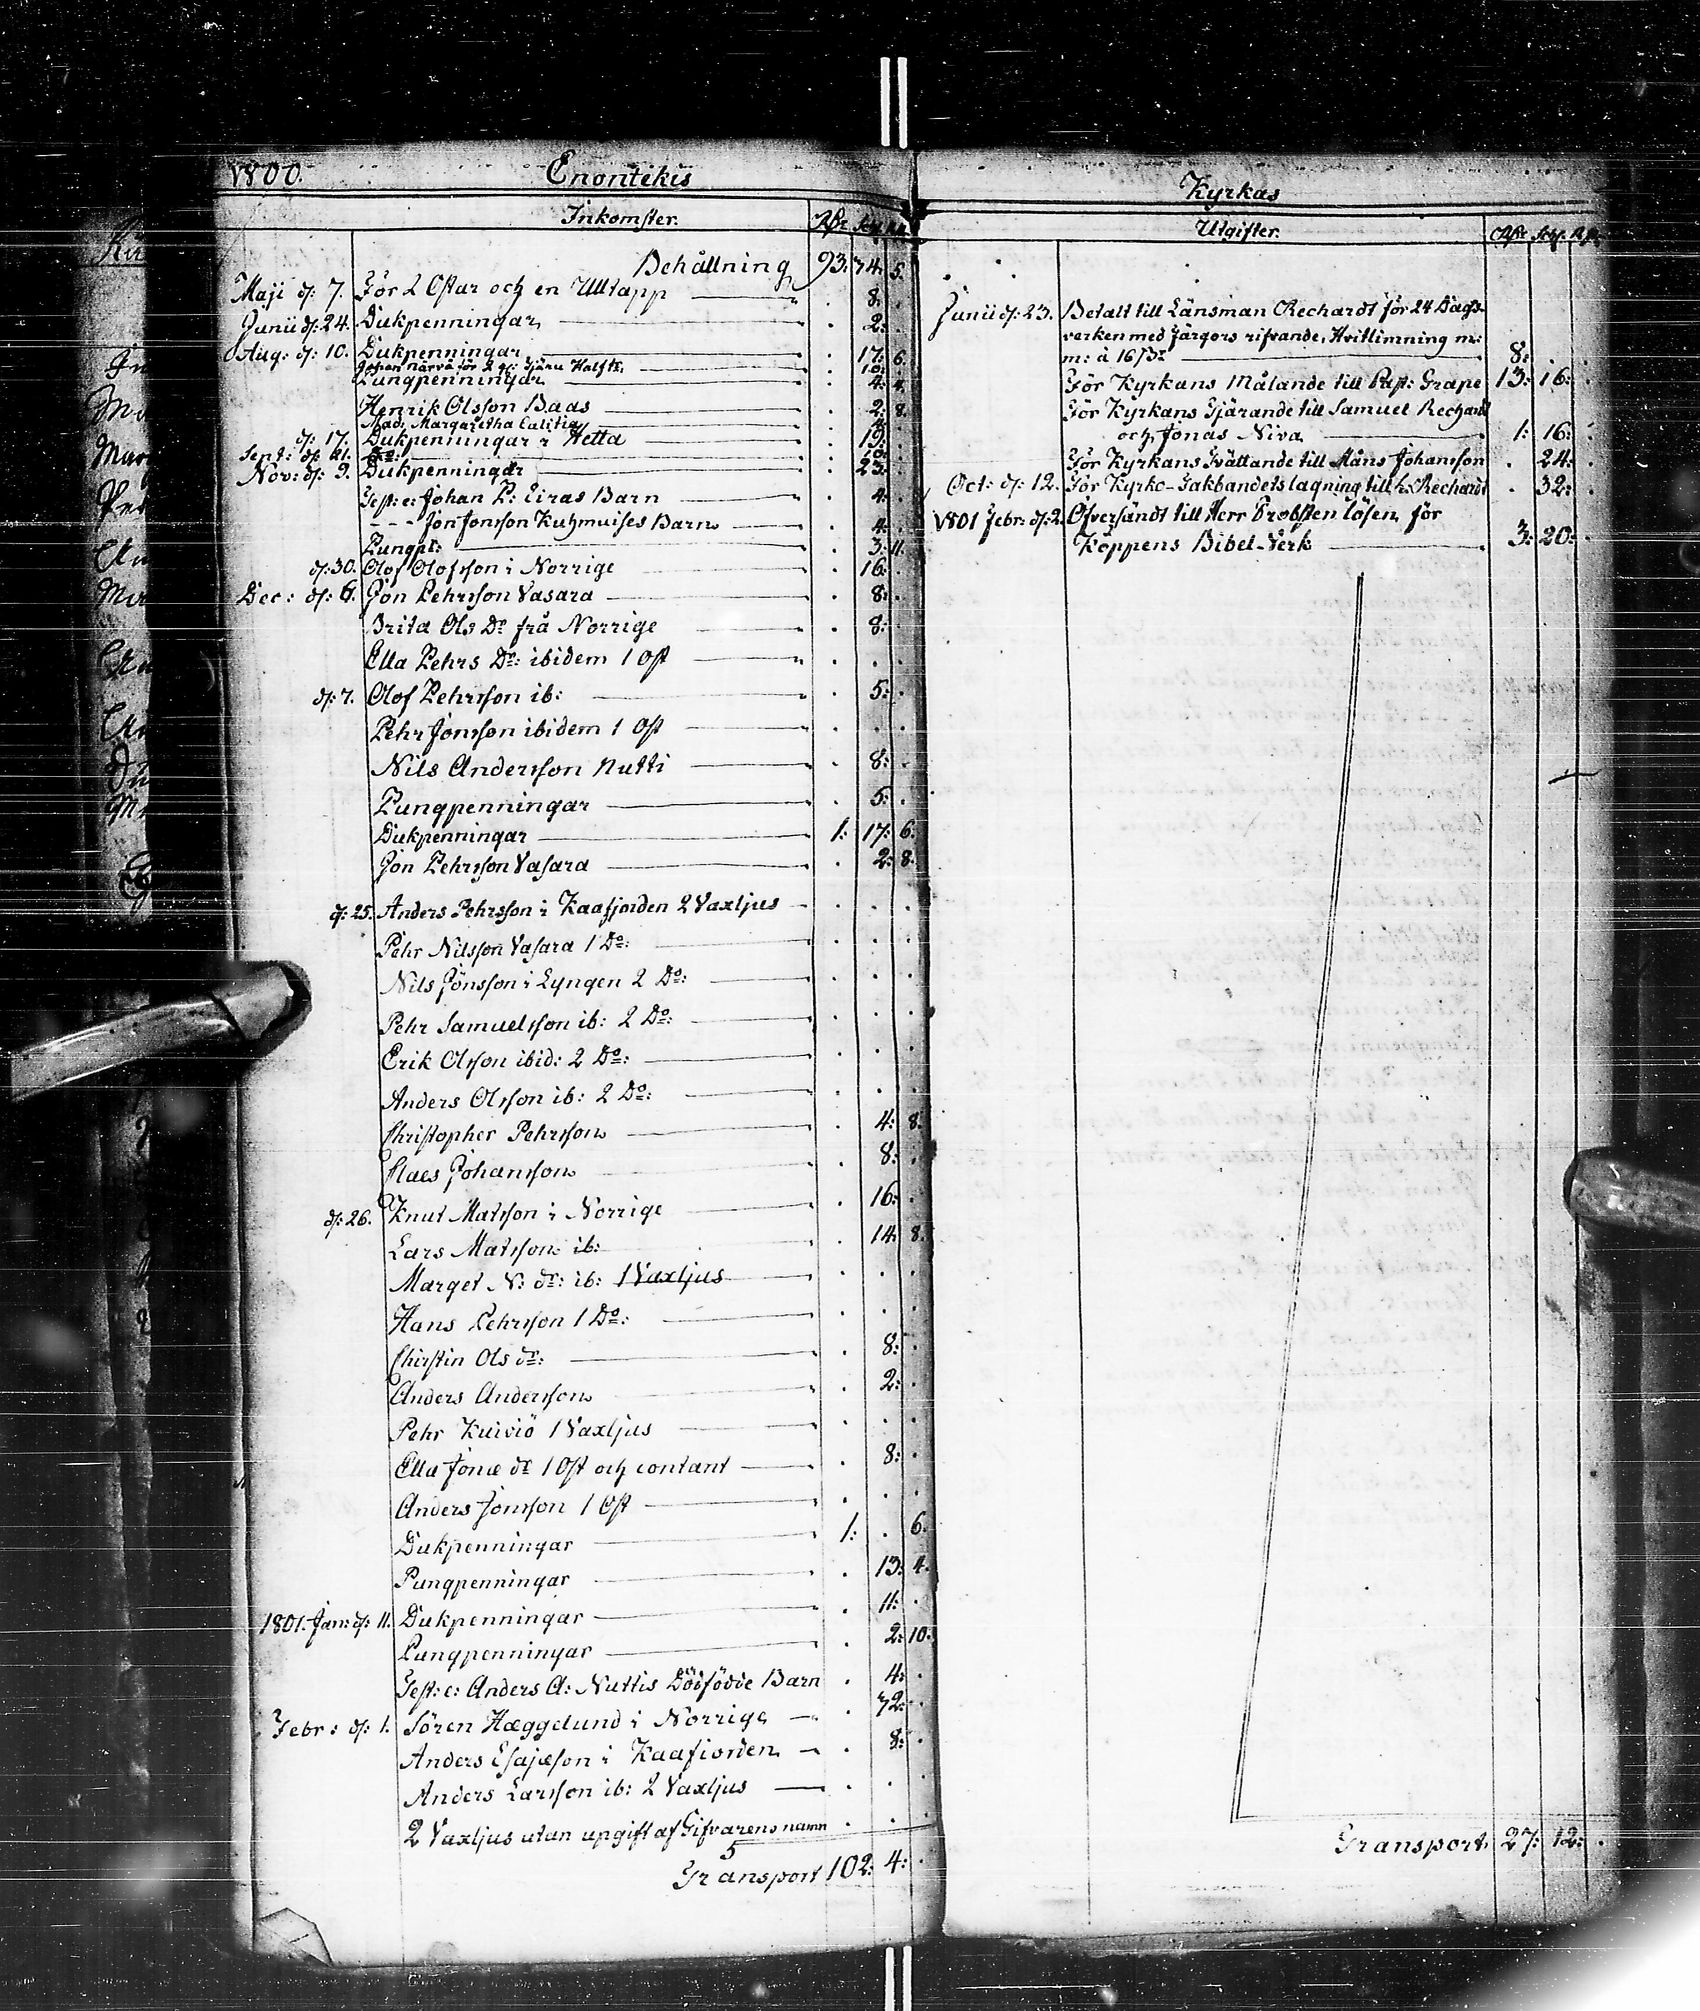 1800. Enontekis
Inkomster. Rdr Sch. R.
Behållning 93: 34. 5.
Maji d: 7. För 2 Ostar och en Ulltapp . 8: .
Junii d: 24. Dukpenningar . 2: .
Aug: d: 10. Dukpenningar . 17: 6.
Johan Närvä för 2 Halft . 10: .
Pungpenningar . 4: 4.
Henrik Olsson Baas . 2: 8.
Mad: Margaretha Calitin . 4: .
d: 17. Dukpenningar i Hetta . 19: .
Sept: d: 21. Do: . 10: .
Nov: d: 9. Dukpenningar . 23: .
Test: e: Johan P: Eiras Barn . 4: .
- - - Jon Jonsson Kuhmuises Barn . 4: .
Pungp: . 3: 11.
d: 30. Olof Olofsson i Norrige . 16: .
Dec: d: 6. Jon Pehrsson Vasara . 8: .
Brita Ols Dr frå Norrige . 8: .
Ella Pehrs Dr: ibidem 1 Ost . . .
d: 7. Olof Pehrsson ib: . 5: .
Pehr Jonsson ibidem 1 Ost . . .
Nils Andersson Nutti . 8: .
Pungpenningar . 5: .
Dukpenningar 1: 17: 6.
Jon Pehrsson Vasara . 2: 8.
d: 25. Anders Pehrsson i Kaafjorden 2 Vaxljus . . .
Pehr Nilsson Vasara 1 Do: . . .
Nils Jönsson i Lyngen 2 Do: . . .
Pehr Samuelsson ib: 2 Do: . . .
Erik Olsson ibid: 2 Do: . . .
Anders Olsson ib: 2 Do: . . .
Christopher Pehrsson . 4: 8.
Claes Johansson . 8: .
d: 26. Knut Matsson i Norrige . 16: .
Lars Matsson ib: . 14: 8.
Marget N: dr: ib: 1 Vaxljus . . .
Hans Pehrsson 1 Do: . . .
Chirstin Ols dr: . 8: .
Anders Andersson . 2: .
Pehr Kuiviö 1 Vaxljus . . .
Ella Jonæ dr 1 Ost och contant . 8: .
Anders Jonsson 1 Ost . . .
Dukpenningar 1: . 6.
Pungpenningar . 13: 4.
1801. Jan: d: 11. Dukpenningar . 11: .
Pungpenningar . 2: 10.
Test: e: Anders A: Nuttis Dödfödde Barn . 4: .
Febr: d: 1. Sören Hæggelund i Norrige . 32: .
Anders Esajæson i Kaafiorden . 8: .
Anders Larsson ib: 2 Vaxljus . . .
2 Vaxljus utan upgift af Gifvarens namn . . .
5
Transport 102: 4: .
Kyrkas
Utgifter. Rdr Sch. R.
Junii d: 23. Betalt till Länsman Rechardt för 24 Dags-
verken med Färgors rifvande, Hvitlimning m:
m: à 16 s: 8: . .
För Kyrkans Målande till Past: Grape 13: 16: .
För Kyrkans Tjärande till Samuel Rechard
och Jonas Niva 1: 16: .
För Kyrkans Tvättande till Måns Johansson . 24: .
Oct: d: 12. För Kyrko-Takbandets lagning till L: Rechardt . 32: .
1801 Febr: d: 2. Öfversändt till Herr Probsten lösen för
Köppens Bibel-Verk 3: 20: .
Transport 27: 12: .